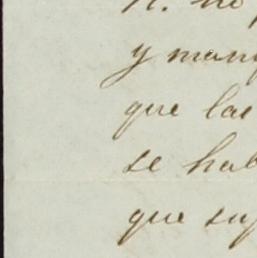 n. no
y man
que las
se hab
que su